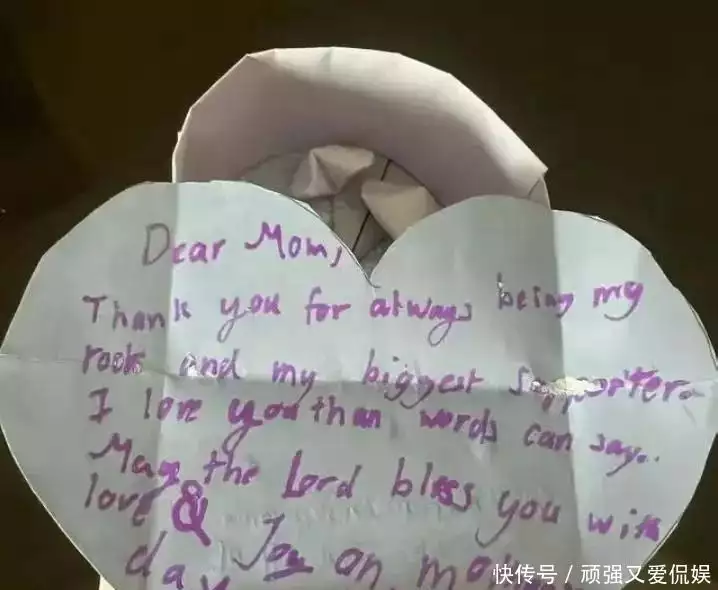 Dear Mom,
Thank you for always being my
rock and my biggest supporter.
I love you than words can say.
May the Lord bless you with
love &
Joy on
day
快传号 / 顽强又爱侃娱